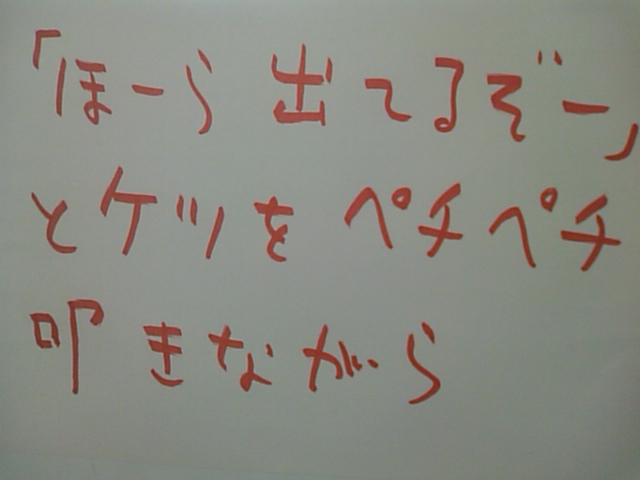 「ほーら 出てるぞー」
とケツを ペチペチ
叩きながら